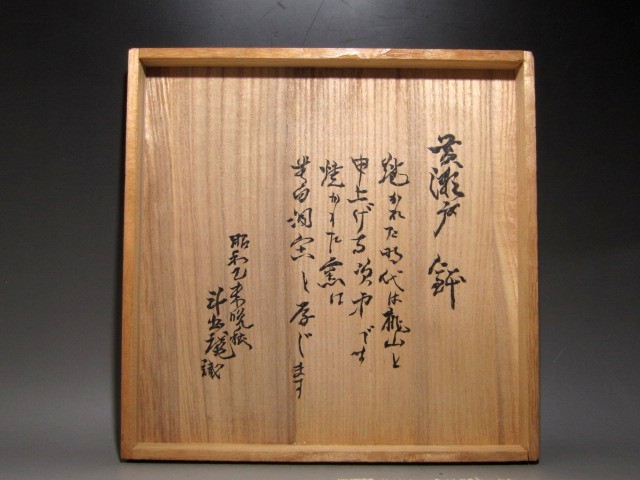 黄瀬戸 鉢
焼かれた時代は桃山と
申上げる資力です
焼かれた窯は
美白洞窯と存じます
昭和乙未晩秋
斗出庵識